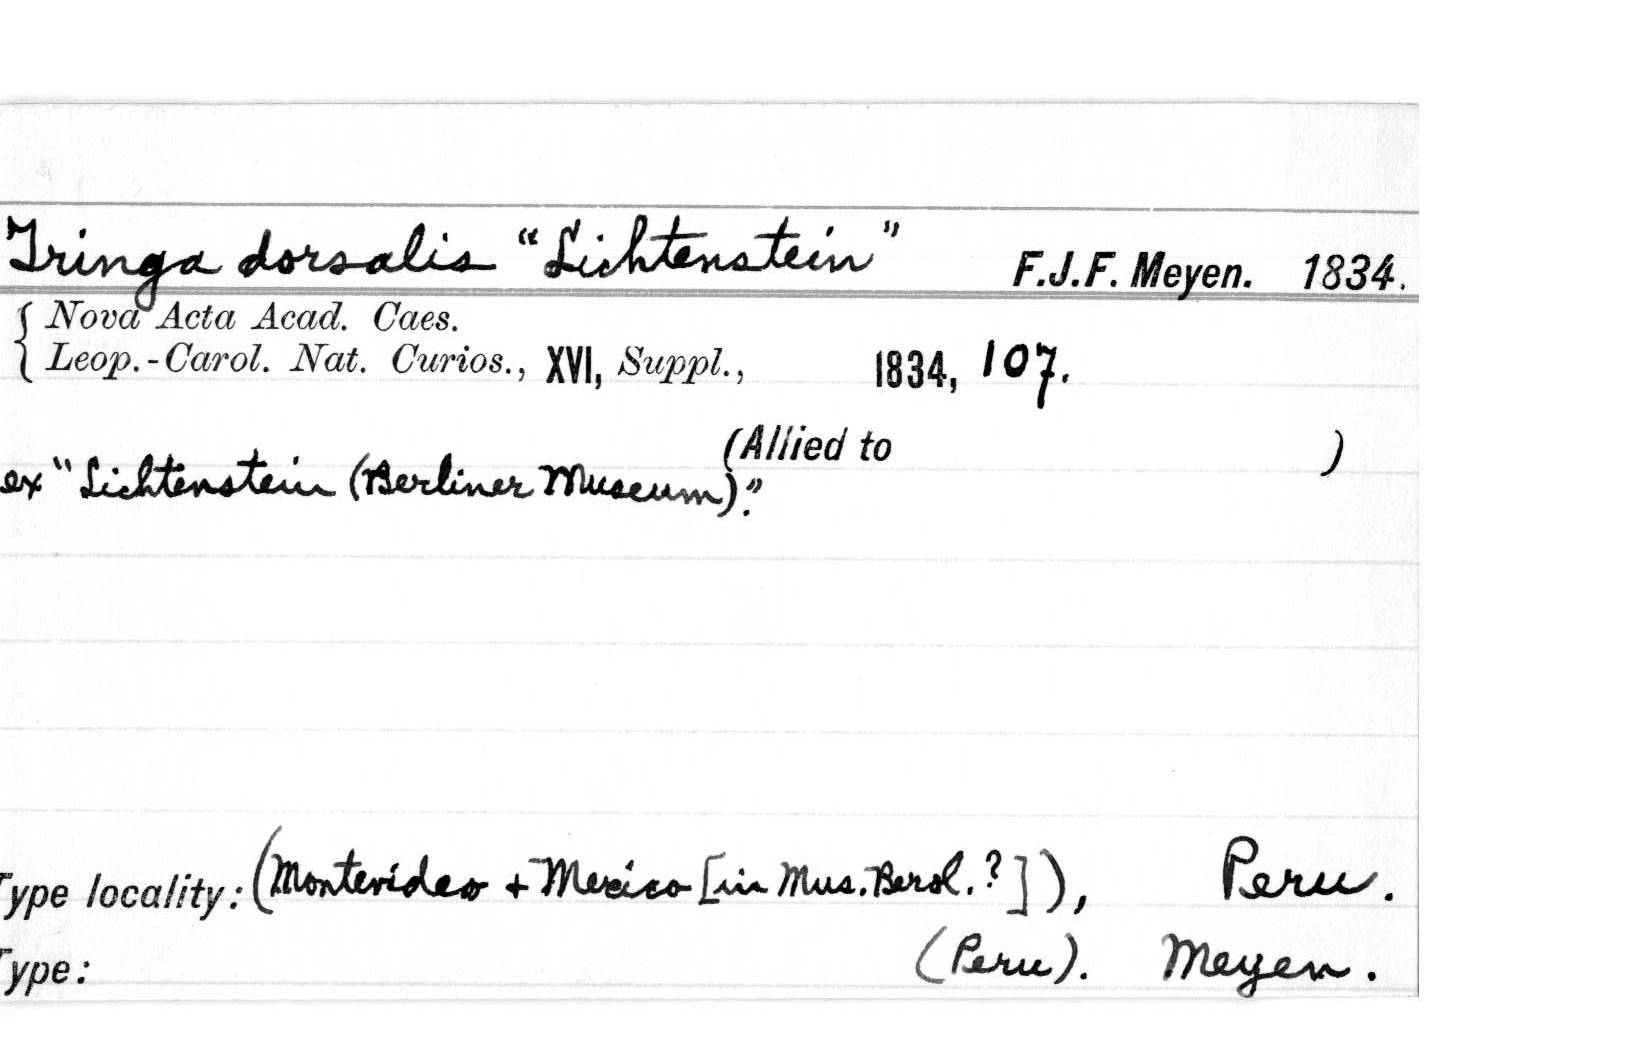 Tringa dorsalis "Lichtenstein" F.J.F. Meyen. 1834.
Nova Acta Acad. Caes.
Leop.-Carol. Nat. Curios., XVI, Suppl., 1834, 107.
(Allied to )
ex "Lichtenstein (Berliner Museum)".
Type locality: (Montevideo + Mexico [in Mus. Berol.?]), Peru.
Type: (Peru). Meyen.